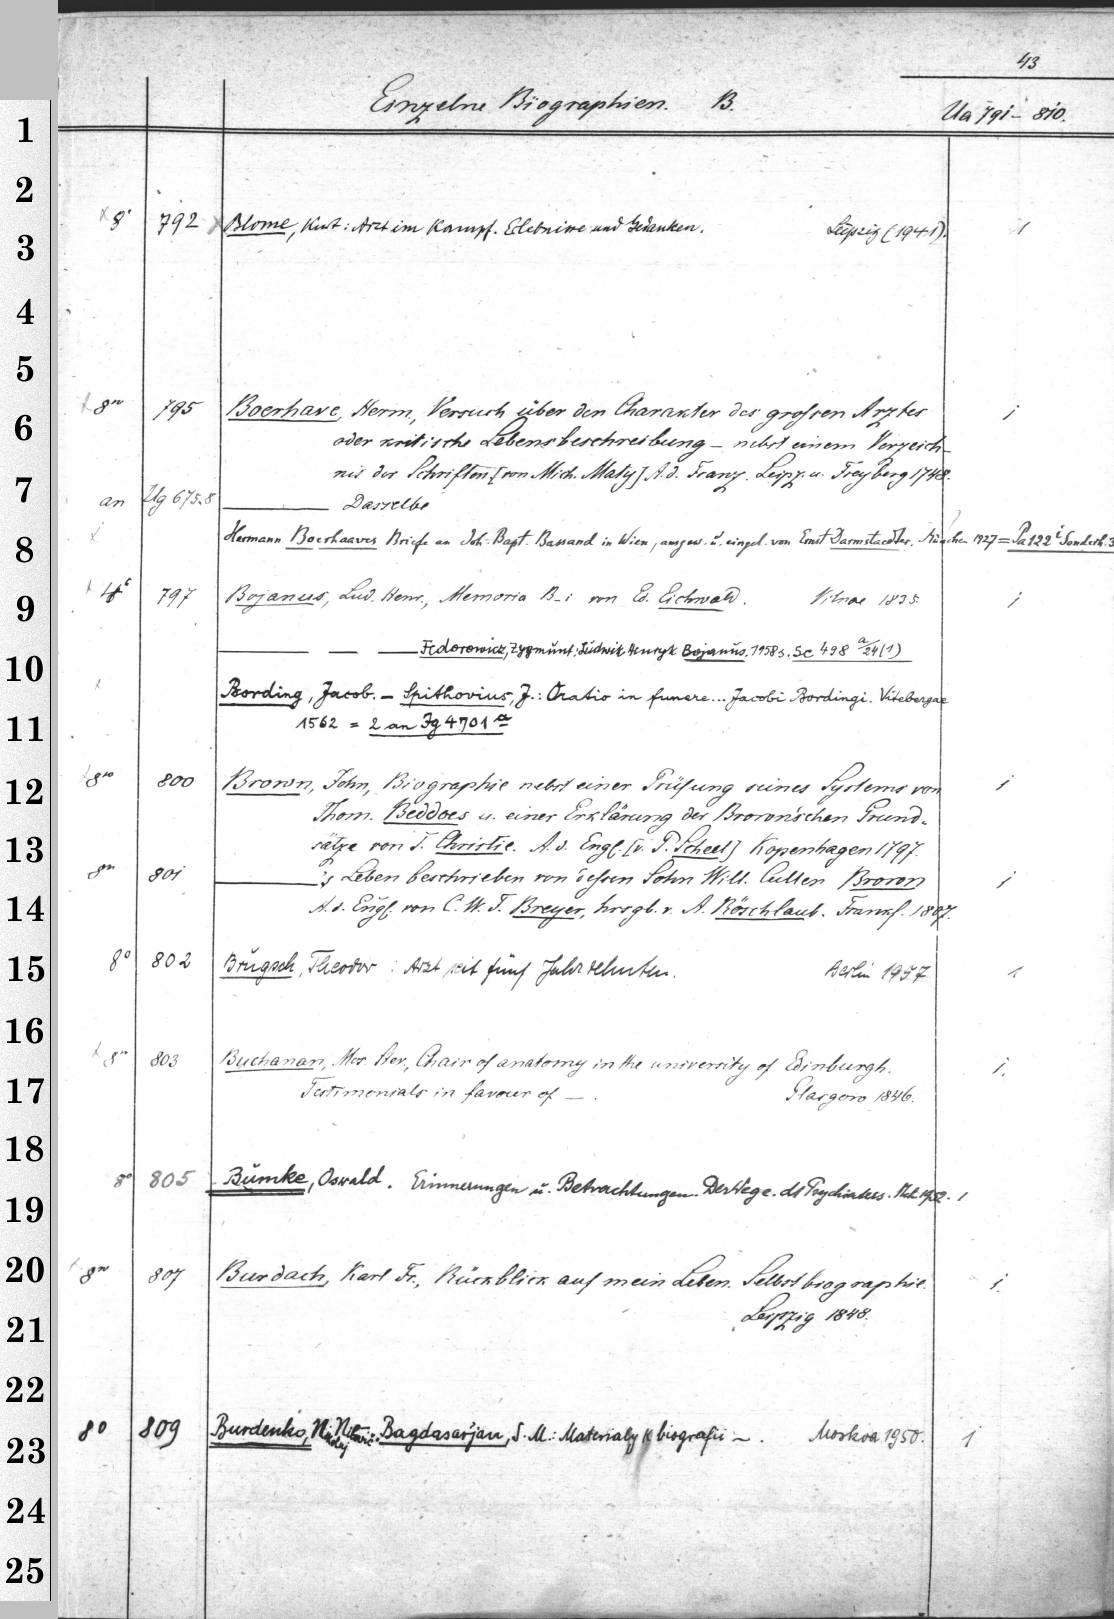 43
Einzelne Biographien. B. Ua 791 - 810.
1
2
8° 792 Blome, Kurt: Arzt im Kampf. Erlebnisse und Gedanken. Leipzig (1941). 1
3
4
5
8vo 795 Boerhave, Herm, Versuch über den Charakter des grossen Arztes 1
6
oder kritische Lebensbeschreibung – nebst einem Verzeich-
nis der Schriften [von Mich. Maty] A. d. Franz. Leipz. u. Freyberg 1748.
7
an Ug 675.8 ——— Dasselbe
8
Hermann Boerhaaves Briefe an Joh. Bapt. Bassand in Wien, ausgew. u. eingel. von Ernst Darmstaedter. München 1927 = Pa 122 i Sonderh. 3
9
4° 797 Bojanus, Lud. Henr., Memoria B–i von Ed. Eichwald. Vilnae 1835. 1
10
——— — — Fedorowicz, Zygmunt: Ludwik Henryk Bojanus. 1958 s. Sc 498 a/24(1)
11
Bording, Jacob. – Spithovius, J.: Oratio in funere... Jacobi Bordingi. Vitebergae
1562 = 2 an Jg 4701 a
12
8vo 800 Brown, John, Biographie nebst einer Prüfung seines Systems von 1
Thom. Beddoes u. einer Erklärung der Brown'schen Grund-
13
sätze von T. Christie. A. d. Engl. [v. P. Scheel] Kopenhagen 1797.
8vo 801 ———'s Leben beschrieben von dessen Sohn Will. Cullen Brown 1
14
A. d. Engl. von C. W. F. Breyer, hrsgb. v. A. Röschlaub. Frankf. 1807.
15
8° 802 Brugsch, Theodor: Arzt seit fünf Jahrzehnten. Berlin 1957 1
16
8vo 803 Buchanan, Mos. Stev., Chair of anatomy in the university of Edinburgh. 1.
17
Testimonials in favour of –. Glasgow 1846.
18
8° 805 Bumke, Oswald. Erinnerungen u. Betrachtungen. Der Weg e. dt Psychiaters. Mch. 1952. 1
19
20
8vo 807 Burdach, Karl Fr., Rückblick auf mein Leben. Selbstbiographie. 1.
21
Leipzig 1848.
22
23
8° 809 Burdenko, Nikolaj Nilovič: Bagdasar'jan, S. M.: Materialy k biografii –. Moskva 1950. 1
24
25